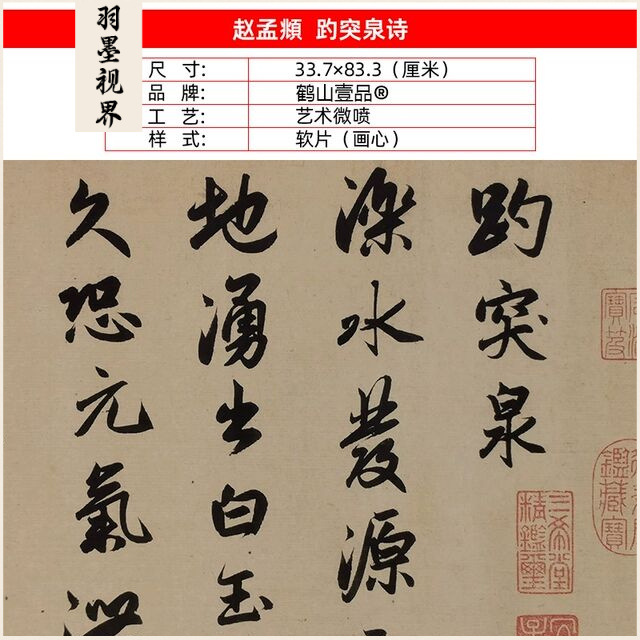 羽墨视界
赵孟頫 趵突泉诗
尺 寸: 33.7×83.3（厘米）
品 牌: 鹤山壹品®
工 艺: 艺术微喷
样 式: 软片（画心）
趵突泉
濼水發源
地湧出白玉
久恐元氣
三希堂精鑑璽
鑑藏寶